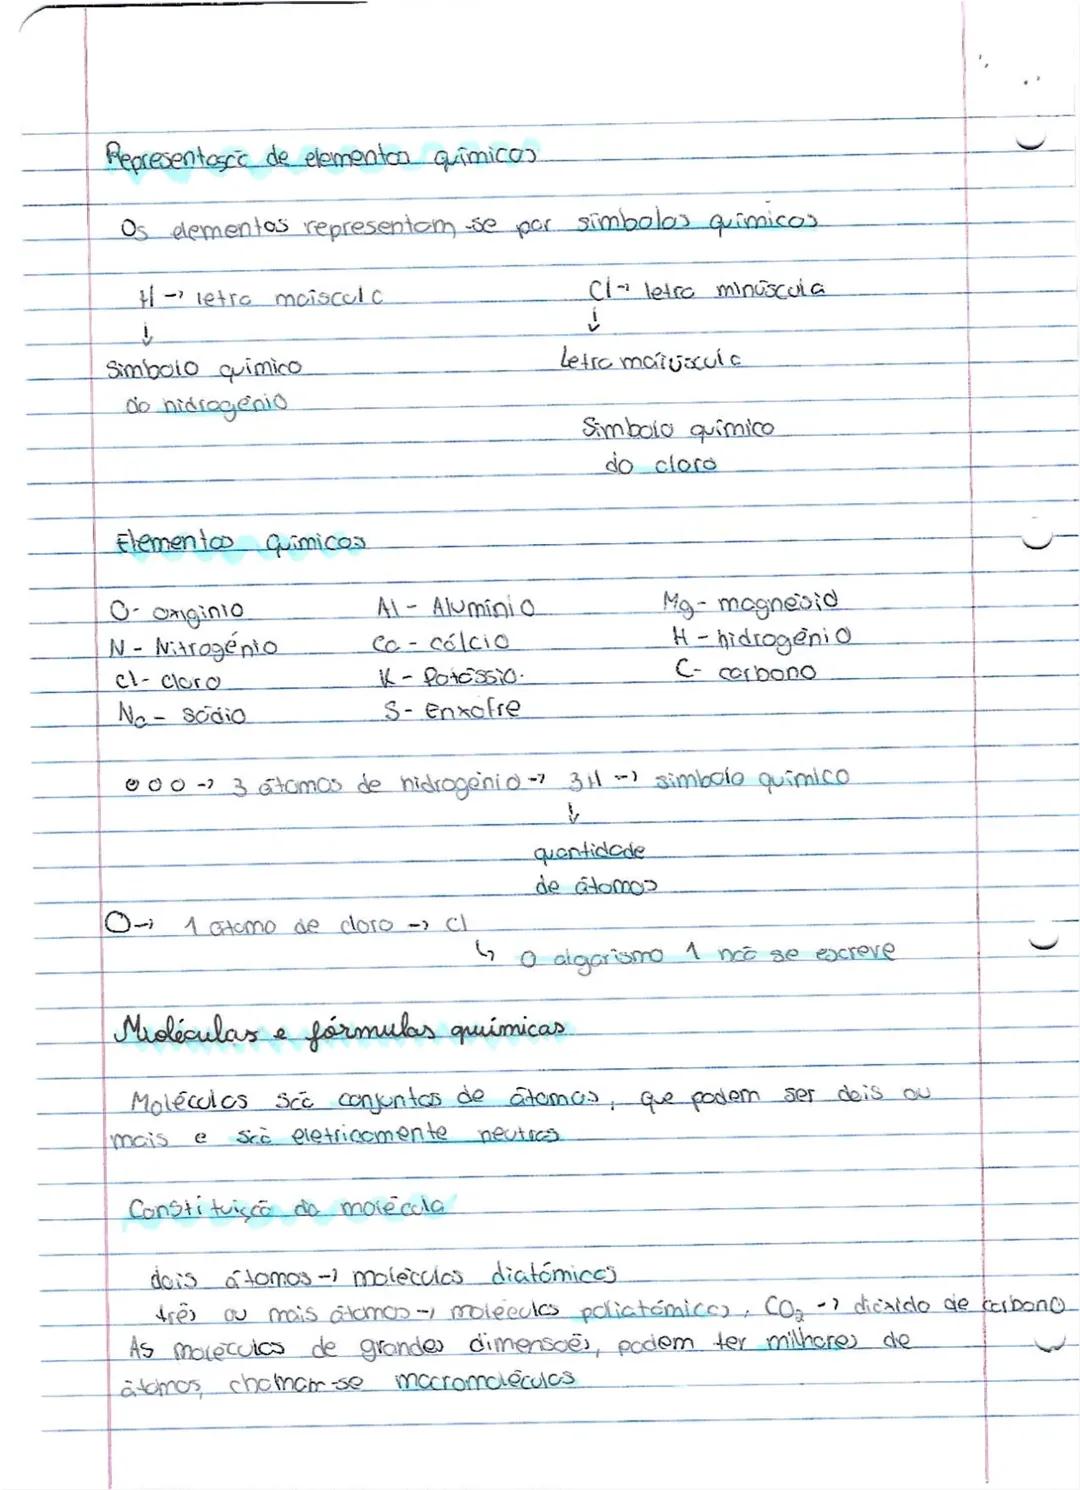 Representação de elementos químicos
Os elementos representam-se por símbolos químicos
H → letra maiscula
Cl → letra minúscula
↓
↓
Símbolo químico
Letra maiúscula
do hidrogénio
Símbolo químico
do cloro
Elementos Químicos
O - oxiginio
Al - Alumínio
Mg - magnésio
N - Nitrogénio
Ca - cálcio
H - hidrogénio
Cl - cloro
K - Potássio.
C - carbono
Na - sódio
S - enxofre
000 → 3 átomos de hidrogénio → 3H → símbolo químico
↓
quantidade
de átomos
O → 1 átomo de cloro → Cl
↳ O algarismo 1 não se escreve
Moléculas e fórmulas químicas
Moléculas são conjuntos de átomos, que podem ser dois ou
mais e são eletricamente neutras
Constituição da molécula
dois átomos → moléculas diatómicas
três ou mais átomos → moléculas poliatómicas, CO₂ → dióxido de carbono
As moléculas de grandes dimensões, podem ter milhares de
átomos, chamam-se macromoléculas